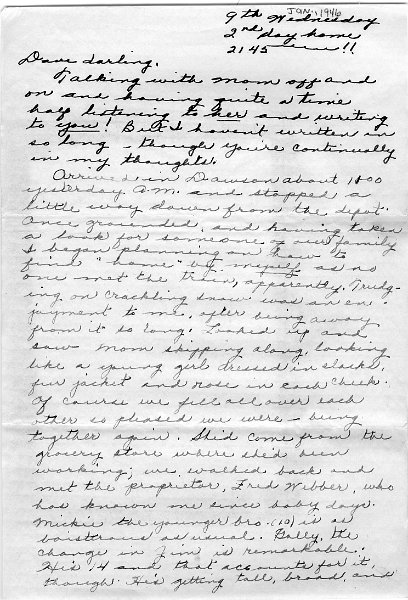 JAN. 1946
9th Wednesday
2nd day home
2145 !!
Dave darling,
Talking with Mom off and
on and having quite a time
half listening to her and writing
to you! But I haven't written in
so long - though you're continually
in my thoughts.
Arrived in Dawson about 1100
yesterday A.M. and stopped a
little way down from the depot.
Once grounded, and having taken
a look for someone of our family
I began planning on how to
find "home" by myself as no
one met the train, apparently. Trudg-
ing on crackling snow was an en-
joyment to me, after being away
from it so long. Looked up and
saw Mom skipping along, looking
like a young girl dressed in slacks,
fur jacket and rose in each cheek.
Of course we fell all over each
other so pleased we were - being
together again. She'd come from the
grocery store where she'd been
working; we walked back and
met the proprietor, Fred Webber, who
has known me since baby days.
Mickie the younger bro. (10) is as
boistrous as usual. Golly, the
change in Jim is remarkable.
He's 14 and that accounts for it,
though. He's getting tall, broad, and